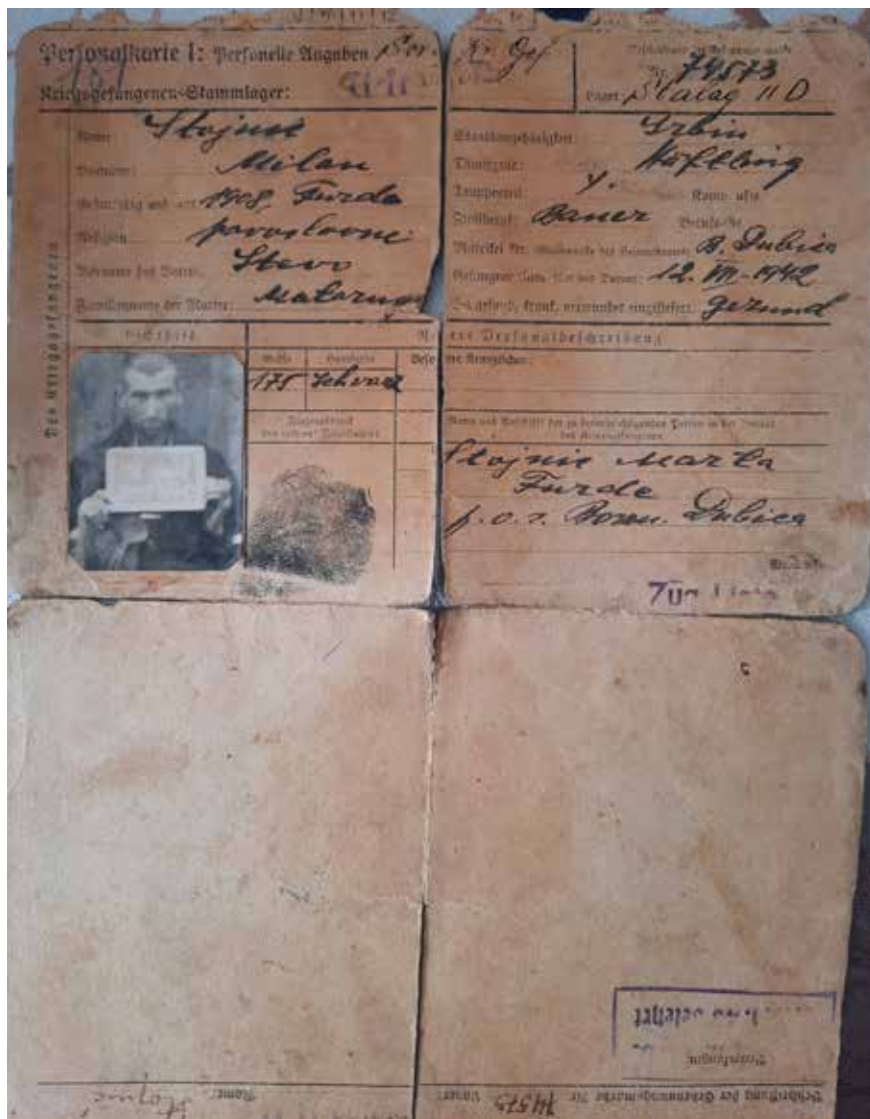 Personalkarte I: Personelle Angaben
Kriegsgefangenen-Stammlager:
Nr. 74573
Lager: Stalag II D
Des Kriegsgefangenen
Name: Stojnic
Vorname: Milan
Geburtstag und -ort: 1908, Furde
Religion: pravoslavni
Vorname des Vaters: Stevo
Familienname der Mutter:
Staatsangehörigkeit: Srbin
Dienstgrad: Häftling
Truppenteil: Komp. usw.
Zivilberuf: Bauer Berufs-Gr.
Matrikel Nr. B. Dubica
Gefangennahme (Ort und Datum): 12. VII-1942
Ob gesund, krank, verwundet eingeliefert: gezund
Lichtbild
Nähere Personalbeschreibung
Größe Haarfarbe Besondere Kennzeichen:
175 Schvarz
Fingerabdruck
des rechten Zeigefingers
Name und Anschrift der zu benachrichtigenden Person in der Heimat
des Kriegsgefangenen
Stojnic Marta
Furde
p.o.z. Bosan. Dubica
Beschriftung der Erkennungsmarke Nr. 74573 Lager: Name: Stojnic